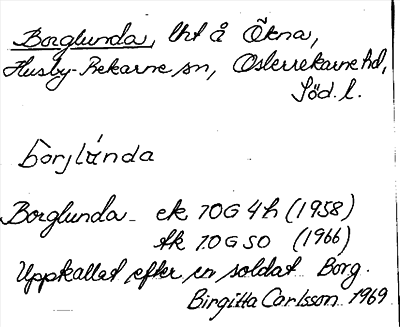 Borglunda, lht å Ökna,
Husby-Rekarne sn, Österrekarne hd,
Söd. l.
bòrjlúnda
Borglunda - ek 10G 4h (1958)
tk 10G SO (1966)
Uppkallat efter en soldat Borg.
Birgitta Carlsson 1969